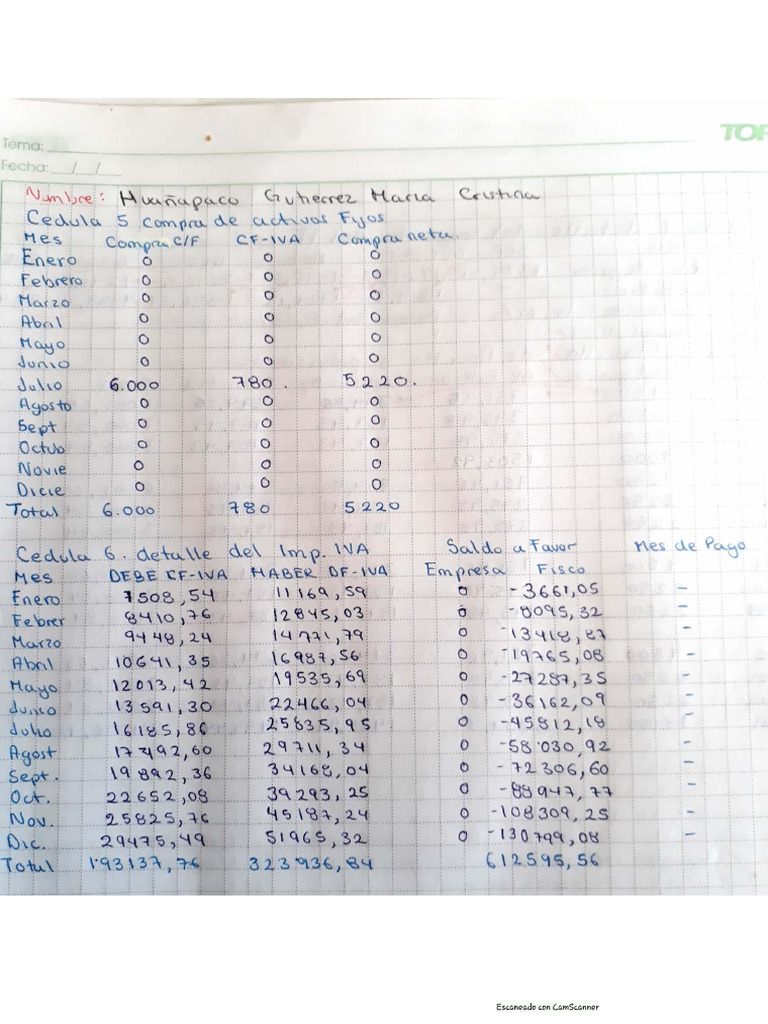 TOP
Tema:
Fecha: / /
Nombre: Huañapaco Gutierrez Maria Cristina
Cedula 5 compra de activos Fijos
Mes Compra C/F CF-IVA Compra neta.
Enero 0 0 0
Febrero 0 0 0
Marzo 0 0 0
Abril 0 0 0
Mayo 0 0 0
Junio 0 0 0
Julio 6.000 780. 5220.
Agosto 0 0 0
Sept 0 0 0
Octub 0 0 0
Novie 0 0 0
Dicie 0 0 0
Total 6.000 780 5220
Cedula 6. detalle del Imp. IVA Saldo a Favor Mes de Pago
Mes DEBE CF-IVA HABER DF-IVA Empresa Fisco
Enero 7508,54 11169,59 0 -3661,05 -
Febrer 8410,76 12845,03 0 -8095,32 -
Marzo 9448,24 14771,79 0 -13418,87 -
Abril 10641,35 16987,56 0 -19765,08 -
Mayo 12013,42 19535,69 0 -27287,35 -
Junio 13591,30 22466,04 0 -36162,09 -
Julio 16185,86 25835,95 0 -45812,18 -
Agost 17492,60 29711,34 0 -58030,92 -
Sept. 19892,36 34168,04 0 -72306,60 -
Oct. 22652,08 39293,25 0 -88947,77 -
Nov. 25825,76 45187,24 0 -108309,25 -
Dic. 29475,49 51965,32 0 -130799,08 -
Total 193137,76 323936,84 612595,56
Escaneado con CamScanner